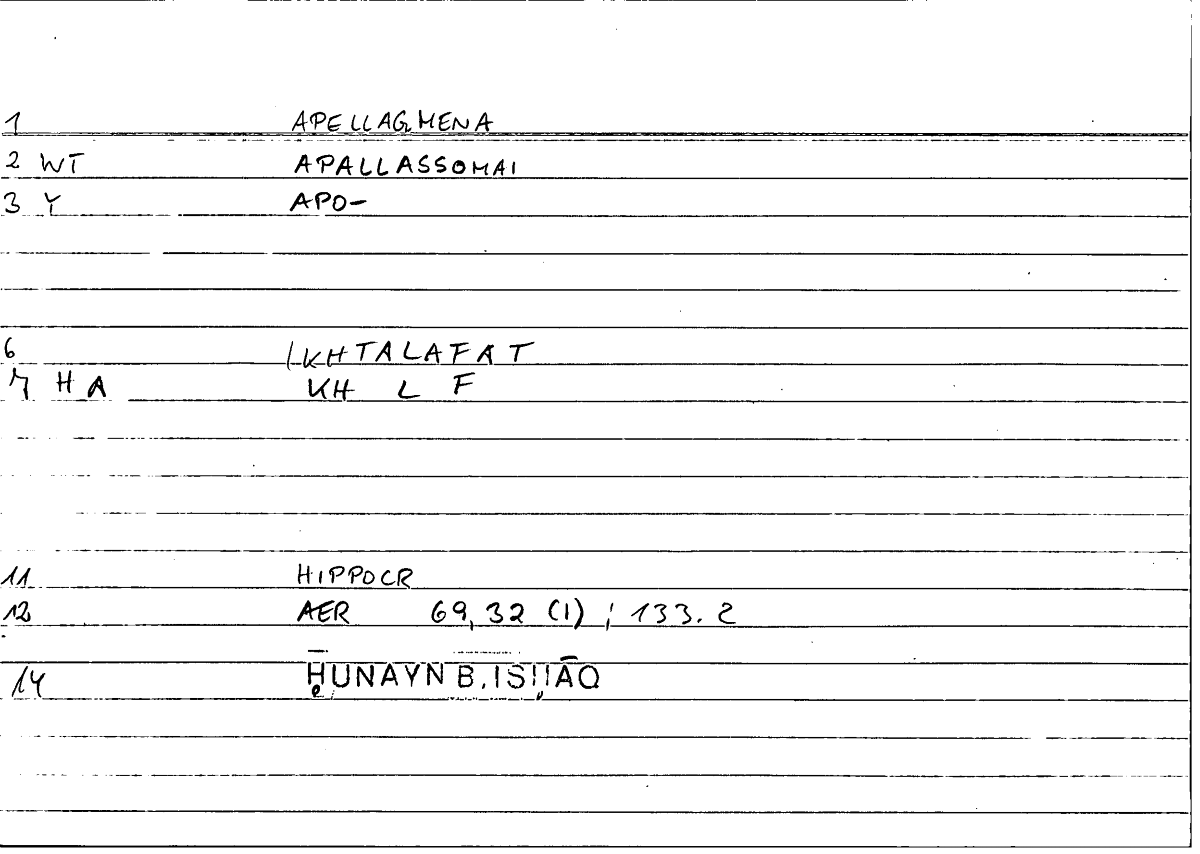 1 APELLAGMENA
2 WT APALLASSOMAI
3 Y APO-
6 IKHTALAFAT
7 HA KH L F
11 HIPPOCR
12 AER 69,32 (1) ; 133.2
14 ḤUNAYN B. ISḤĀQ